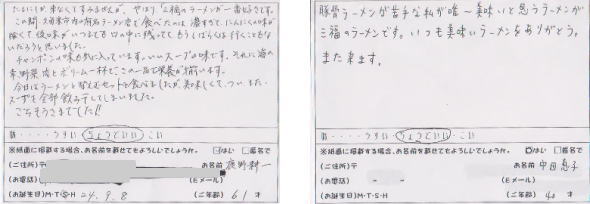 たいらげしか来なくてすみませんが、やはり"三福のラーメン"が一番好きです。
この間、久留米市内の有名ラーメン店で食べたのは、濃すぎて、にんにくの味が
強くて後味がいつまでも口の中に残ってもうしばらくは行くこともな
いだろうと思いました。
チャンポンの味も気に入っています。いいスープの味です。それに海の
幸、野菜、肉とボリューム一杯でこの一品で栄養が摂れます。
今日はラーメンと替え玉セットを食べましたが、美味しくて、つい、また、
スープを全部飲み干してしまいました。
ごちそうさまでした!!
うすい ちょうどいい こい
※紙面に掲載する場合、お名前を載せてもよろしいでしょうか。 はい 匿名で
(ご住所)〒 お名前
(お電話) (Eメール)
(お誕生日)M・T・S・H 24.9.8 (ご年齢) 61 才
豚骨ラーメンが苦手な私が唯一美味いと思うラーメンが
三福のラーメンです。いつも美味いラーメンをありがとう。
また来ます。
うすい ちょうどいい こい
※紙面に掲載する場合、お名前を載せてもよろしいでしょうか。 はい 匿名で
(ご住所)〒 お名前 中田恵子
(お電話) (Eメール)
(お誕生日)M・T・S・H (ご年齢) 40 才